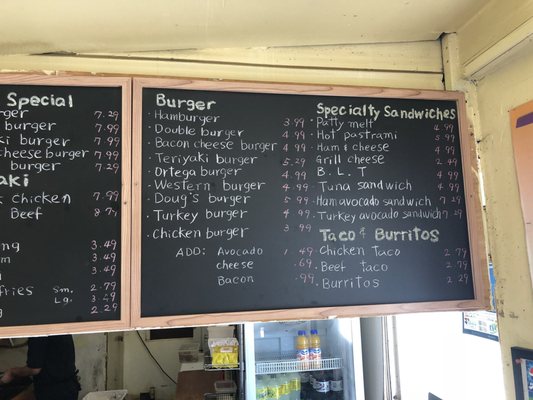 Special
burger 7.29
burger 7.99
ki burger 7.99
cheese burger 7.99
burger 7.29
aki
chicken 7.99
Beef
3.49
3.49
3.49
fries Sm. 2.79
Lg. 3.49
2.29
Burger
Hamburger 3.99
Double burger 4.99
Bacon cheese burger 4.99
Teriyaki burger 5.29
Ortega burger 4.99
Western burger 4.99
Doug's burger 5.99
Turkey burger 4.99
Chicken burger 3.99
ADD: Avocado 1.49
cheese .69
Bacon .99
Specialty Sandwiches
Patty melt 4.99
Hot pastrami 5.99
Ham & cheese 4.99
Grill cheese 2.49
B.L.T 4.99
Tuna sandwich 4.99
Ham avocado sandwich 7.29
Turkey avocado sandwich 7.29
Taco & Burritos
Chicken Taco 2.79
Beef Taco 2.79
Burritos 2.29